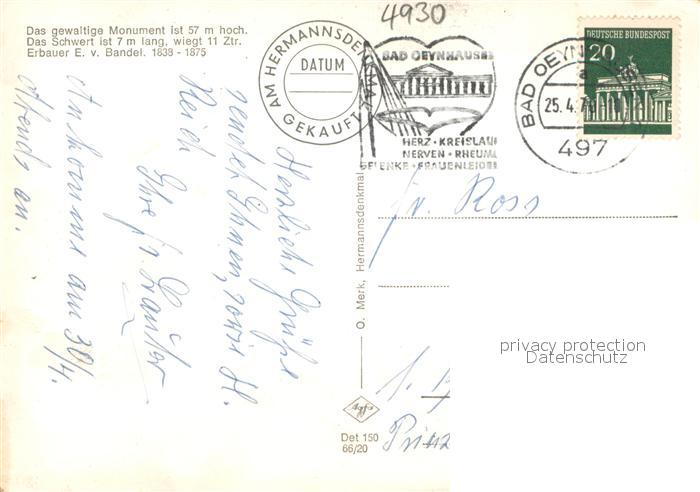 4930
Das gewaltige Monument ist 57 m hoch.
Das Schwert ist 7 m lang, wiegt 11 Ztr.
Erbauer E. v. Bandel. 1838 - 1875
AM HERMANNSDENKMAL
DATUM
GEKAUFT
BAD OEYNHAUSEN
HERZ · KREISLAUF
NERVEN · RHEUMA
GELENKE · FRAUENLEIDEN
BAD OEYNHAUSEN
a
25.4.7
497
DEUTSCHE BUNDESPOST
20
Herzliche Grüße
sendet Ihnen, sowie H.
Reich
Ihre fr. Sauter
Ankomme am 30/4.
Abends an.
Fr. Ross
O. Merk, Hermannsdenkmal
Agfa
Det 150
66/20
Prinz
privacy protection
Datenschutz